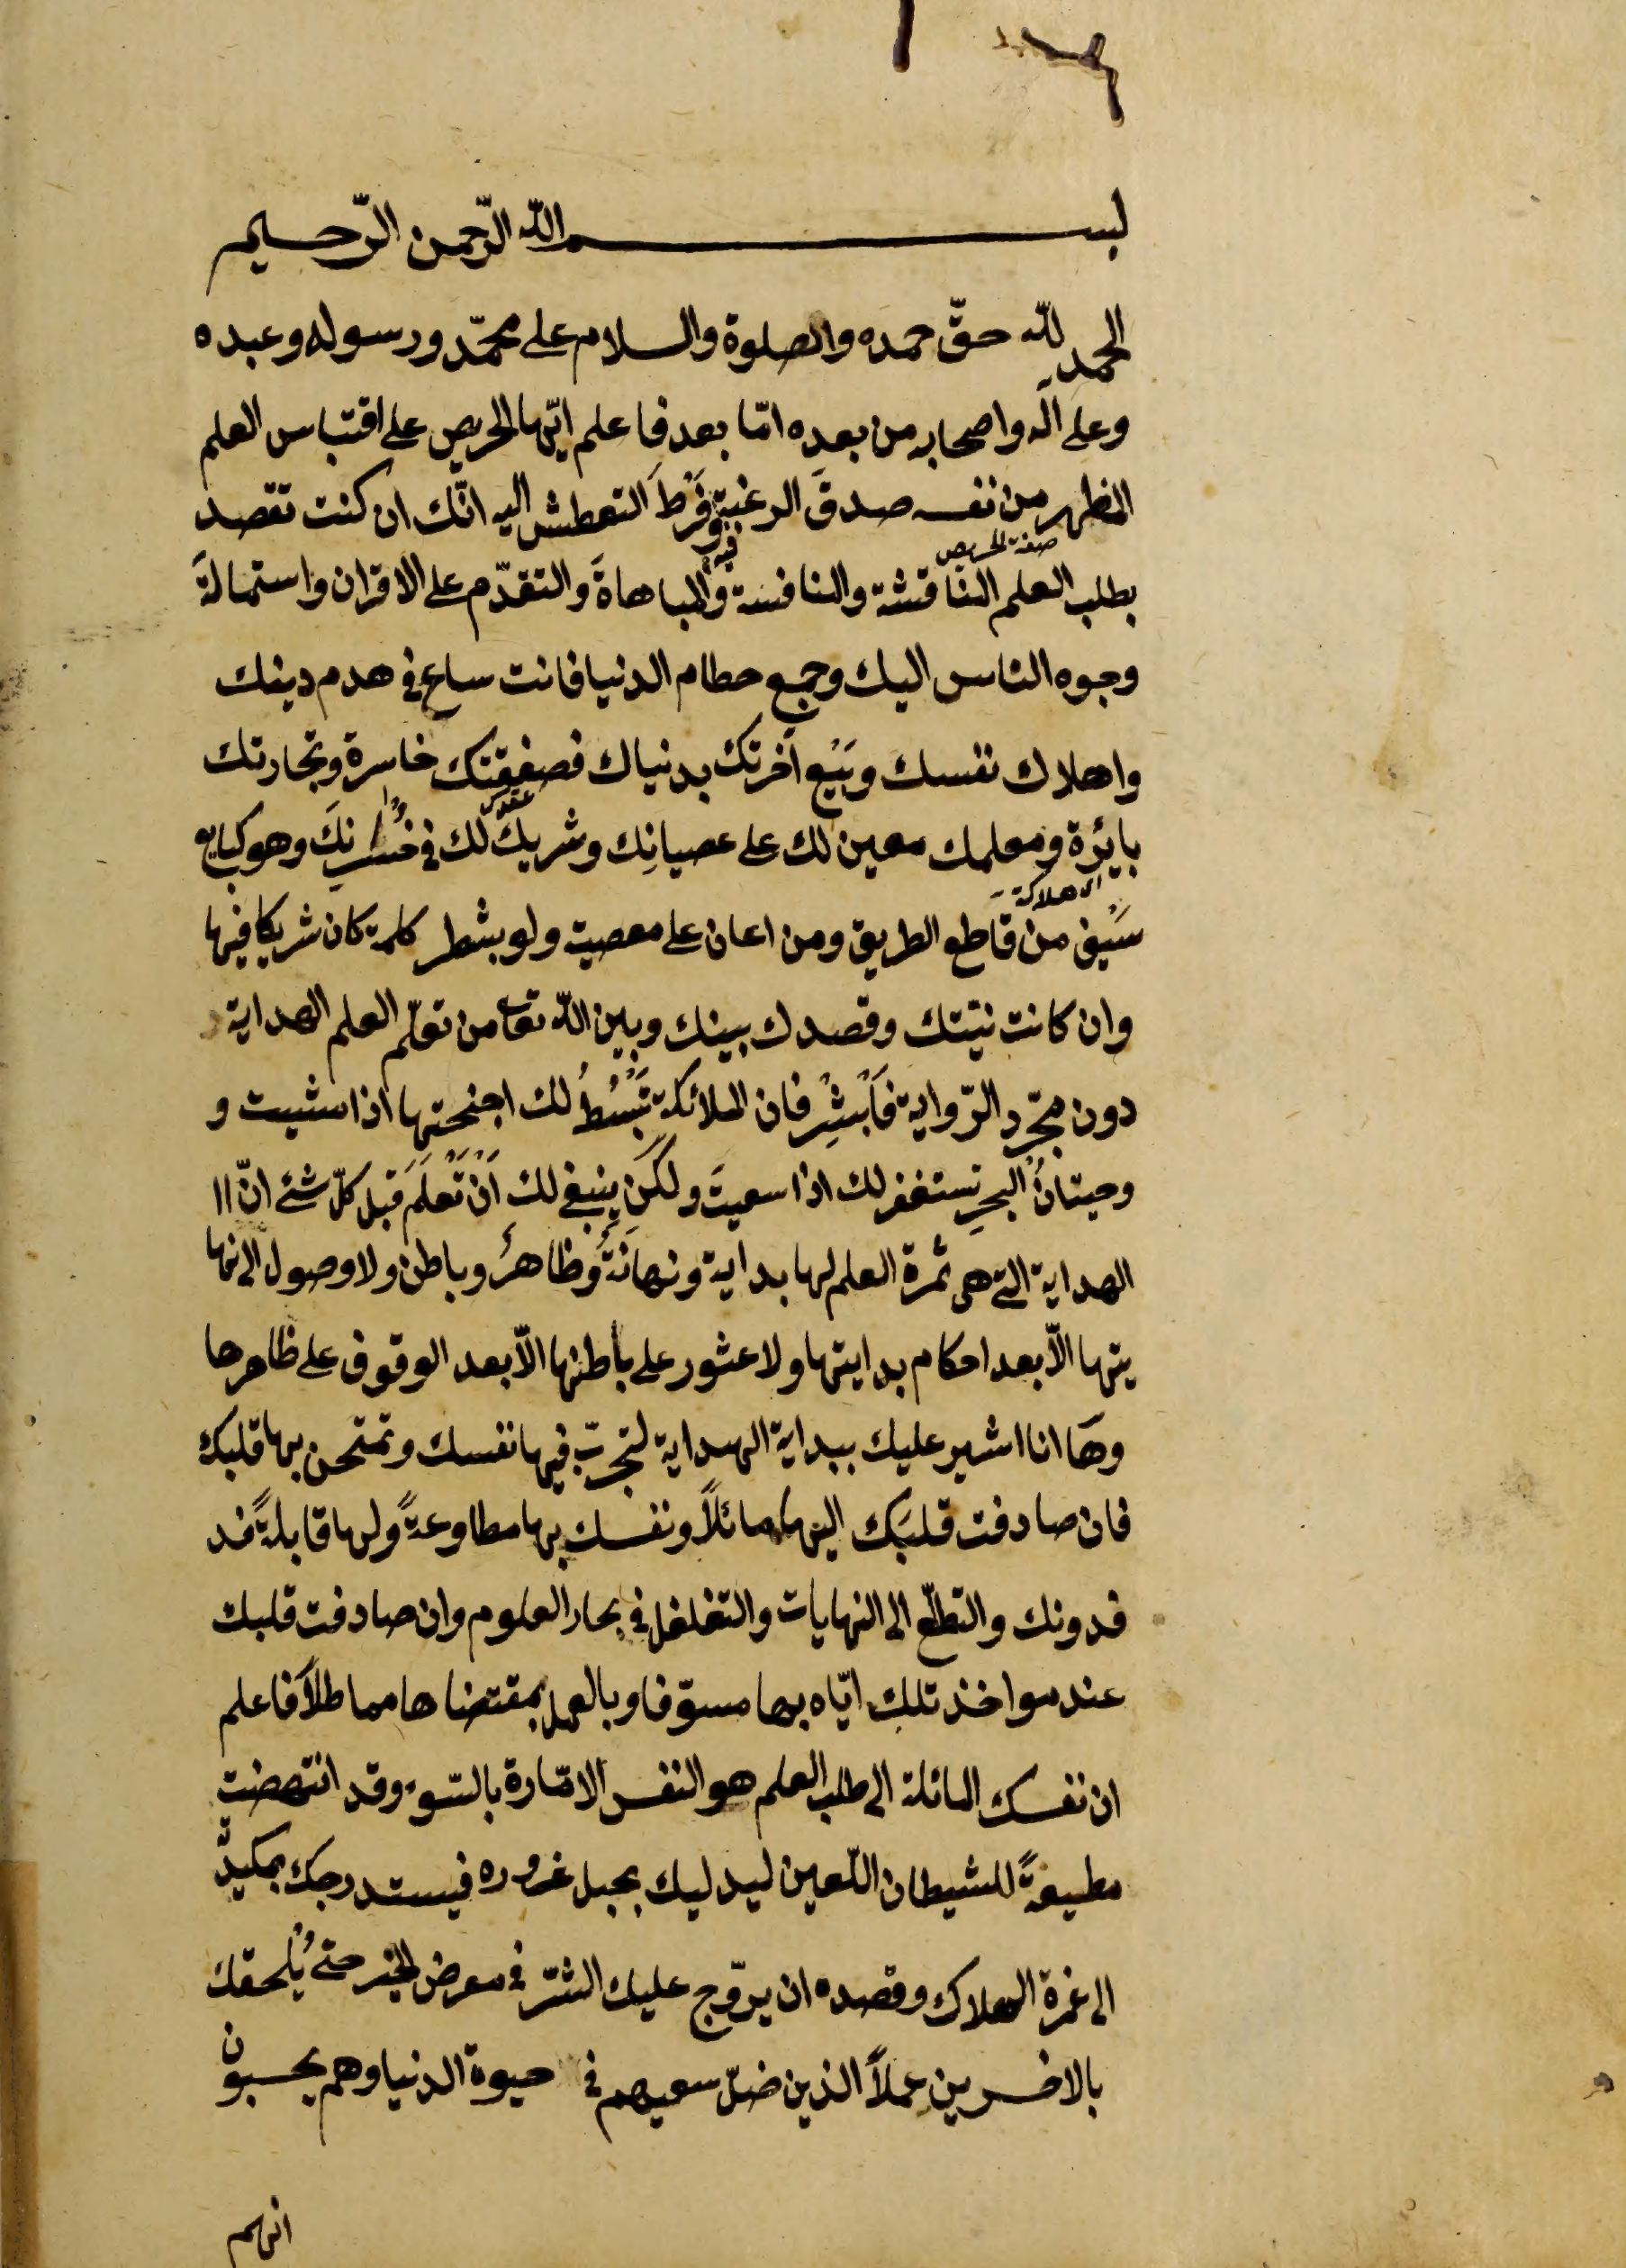 بســــم الله الرّحمن الرّحيم
الحمد لله حقّ حمده والصلوة والسلام على محمّد ورسوله وعبده
وعلى آله واصحابه من بعده امّا بعد فاعلم ايّها الحريص على اقتباس العلم
المظهر من نفسه صدقَ الرغبة وفَرْطَ التعطش اليه انّك ان كنت تقصد
صفة الحريص
فيه
بطلب العلم المناقشة والمنافسة والمباهاةَ والتقدّم على الاقران واستمالةَ
وجوه الناس اليك وجمع حطام الدنيا فانت ساع في هدم دينك
واهلاك نفسك وبَيْع آخرتك بدنياك فصفقتك خاسرة وتجارتك
بايرة ومعلمك معين لك على عصيانِك وشريكٌ لك في خُسْرانِكَ وهو كبايع
سَيْفٍ من قاطع الطريق ومن اعان على معصية ولو بشطر كلمة كان شريكا فيها
وان كانت نيّتك وقصدك بينك وبين الله تعا من تعلّم العلم الهداية
دون مجّرد الرّواية فَاَبْشِرْ فان الملائكة تَبْسُطُ لك اجنحتها اذا مشيت و
وحيتانُ البحرِ تستغفر لك اذا سعيتَ ولكن ينبغي لك اَنْ تَعْلَمَ قبل كلّ شئ انّ اا
الهداية التي هي ثمرة العلم لها بداية ونهايَةٌ وظاهرٌ وباطن ولا وصول الى نها
يتها الّا بعد احكام بدايتها ولا عثور على باطنها الّا بعد الوقوف على ظاهرها
وهَا انا اشير عليك ببداية الهداية لتجربّ فيها نفسك وتمتحن بها قلبك
فان صادفت قلبَك اليها مائلًا ونفسك بها مطاوعةً ولها قابلةً فد
فدونك والتطلّع الى النهايات والتغلغل في بحار العلوم وان صادفت قلبك
عند مواخذتلك ايّاه بها مسوّفا وبالعمل بمقتضاها مماطلًا فاعلم
ان نفسك المائلة الى طلب العلم هو النفس الامّارة بالسّوء وقد انتهضت
مطيعةً للشيطان اللّعين ليدليك بحبل غروره فيستدرجك بمكيدّ
الى غمرة الهلاك وقصده ان يروّج عليك الشرّ في معرض الخير حتى يُلحقك
بالاخسرين عملاً الذين ضلّ سعيهم في حيوة الدنيا وهم يحسبون
انهم